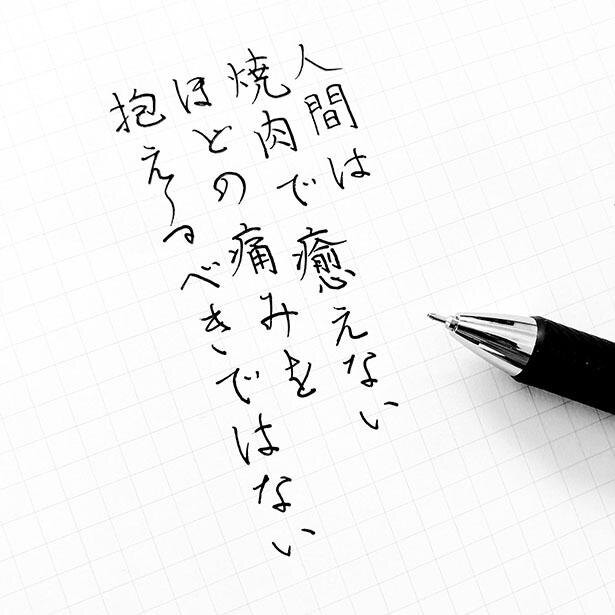 人間は
焼肉で癒えない
ほどの痛みを
抱えるべきではない